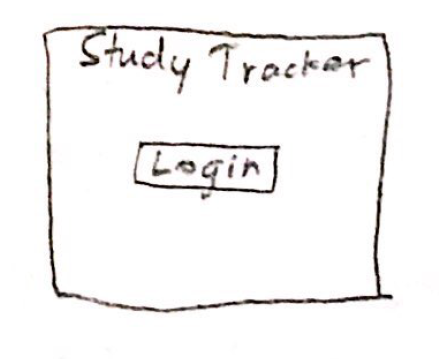 Study Tracker
Login